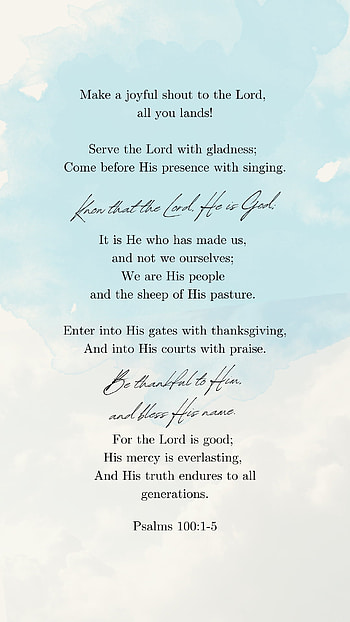 Make a joyful shout to the Lord,
all you lands!
Serve the Lord with gladness;
Come before His presence with singing.
Know that the Lord, He is God;
It is He who has made us,
and not we ourselves;
We are His people
and the sheep of His pasture.
Enter into His gates with thanksgiving,
And into His courts with praise.
Be thankful to Him,
and bless His name.
For the Lord is good;
His mercy is everlasting,
And His truth endures to all
generations.
Psalms 100:1-5